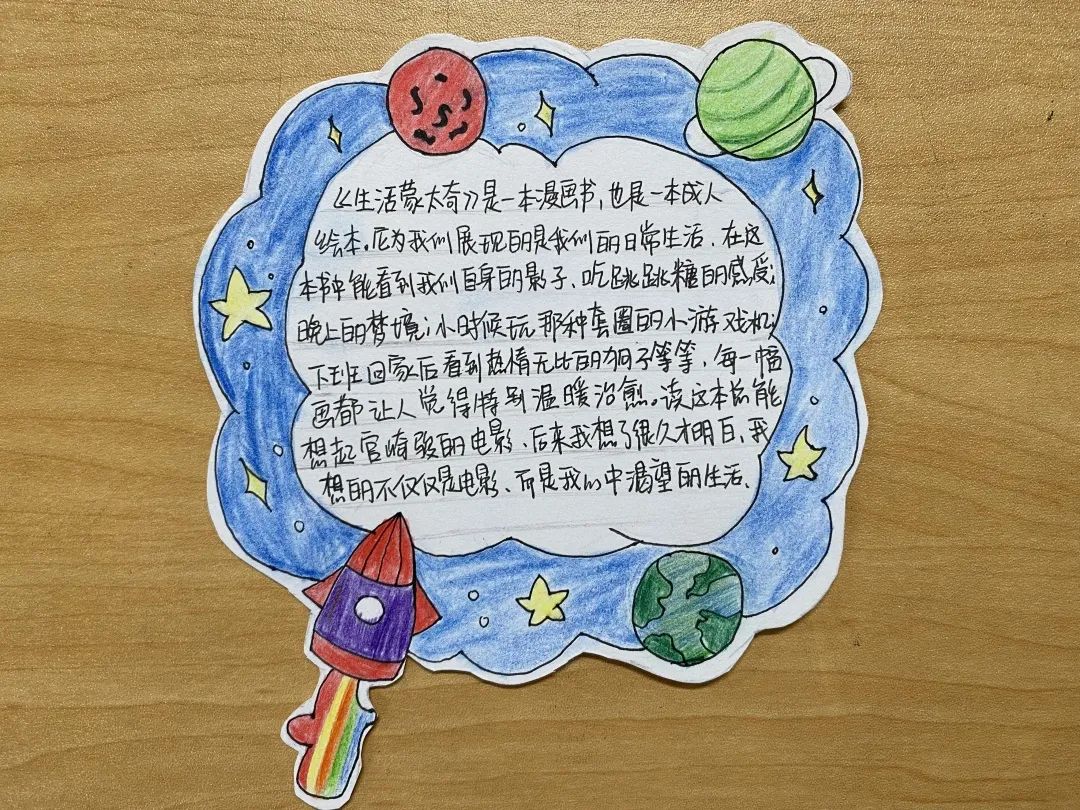 《生活蒙太奇》是一本漫画书，也是一本成人
绘本。因为我们展现的是我们的日常生活、在这
本书中能看到我们自身的影子、吃跳跳糖的感受；
晚上的梦境；小时候玩那种套圈的小游戏机；
下班回家后看到热情无比的狗子等等，每一幅
画都让人觉得特别温暖治愈。读这本总能
想起宫崎骏的电影、后来我想了很久才明白、我
想的不仅仅是电影、而是我心中渴望的生活、